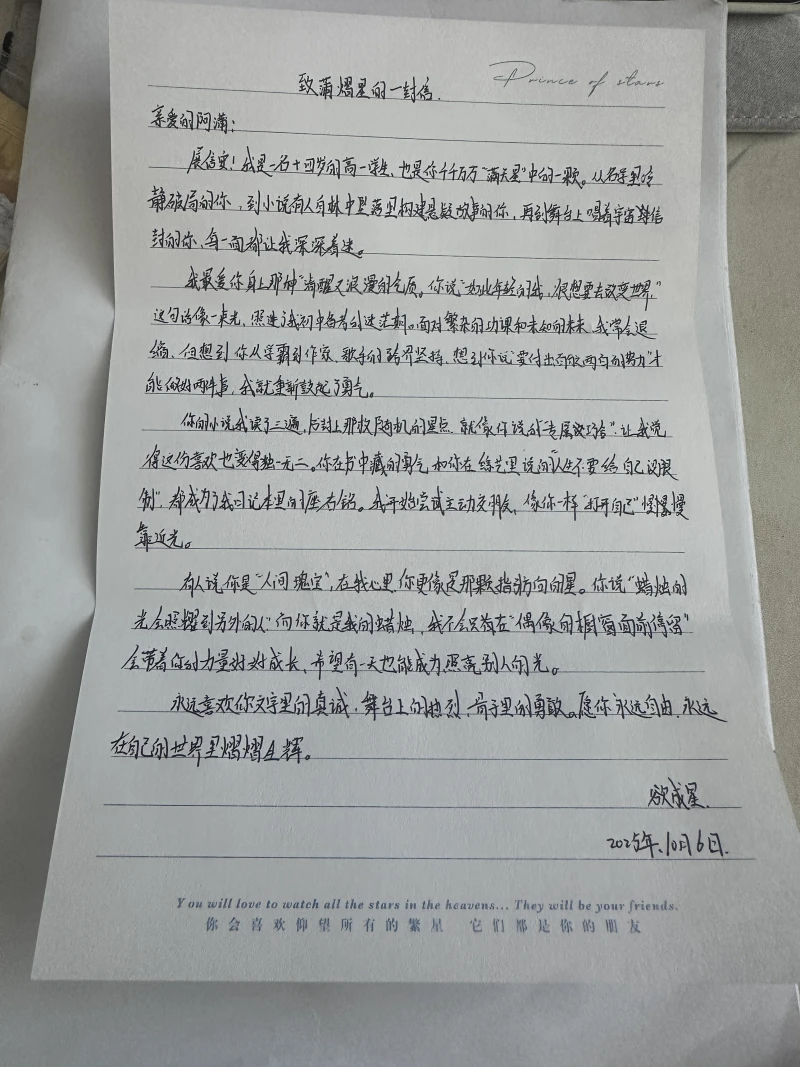 Prince of stars
致蒲熠星的一封信.
亲爱的阿蒲:
展信安!我是一名十四岁的高一学生,也是你千千万万"满天星"中的一颗。从名学里冷
静破局的你,到小说有人自林中坠落里构建悬疑故事的你,再到舞台上唱着宇宙 信
封的你,每一面都让我深深着迷。
我最爱你身上那种"清醒又浪漫的气质。你说"如此年轻的我,很想要去改变世界,"
这句话像一束光,照进了我初中备考的迷茫期。面对繁杂的功课和未知的未来,我常会退
缩,但想到你从学霸到作家、歌手的跨界坚持,想到你说"要付出百分两百的努力"才
能做好两件事,我就重新鼓起了勇气。
你的小说我读了三遍,后封上那枚随机的星点,就像你说的"专属 ",让我觉
得这份喜欢也变得独一无二。你在书中藏的勇气和你在综艺里说的"人生不要给自己设限
制",都成为了我习记本里的座右铭。我开始尝试主动交朋友,像你一样"打开自己"慢慢慢
靠近光。
有人说你是"人间瑰宝",在我心里,你更像是那颗指引方向的星。你说"蜡烛的
光会照耀到另外的人"而你就是我的蜡烛,我不会只为在"偶像的橱窗面前停留"
会带着你的力量好好成长,希望有一天也能成为照亮别人的光。
永远喜欢你文字里的真诚,舞台上的热烈,骨子里的勇敢。愿你永远自由,永远
在自己的世界里熠熠生辉。
欲成星.
2025年.10月6日.
You will love to watch all the stars in the heavens... They will be your friends.
你会喜欢仰望所有的繁星 它们都是你的朋友